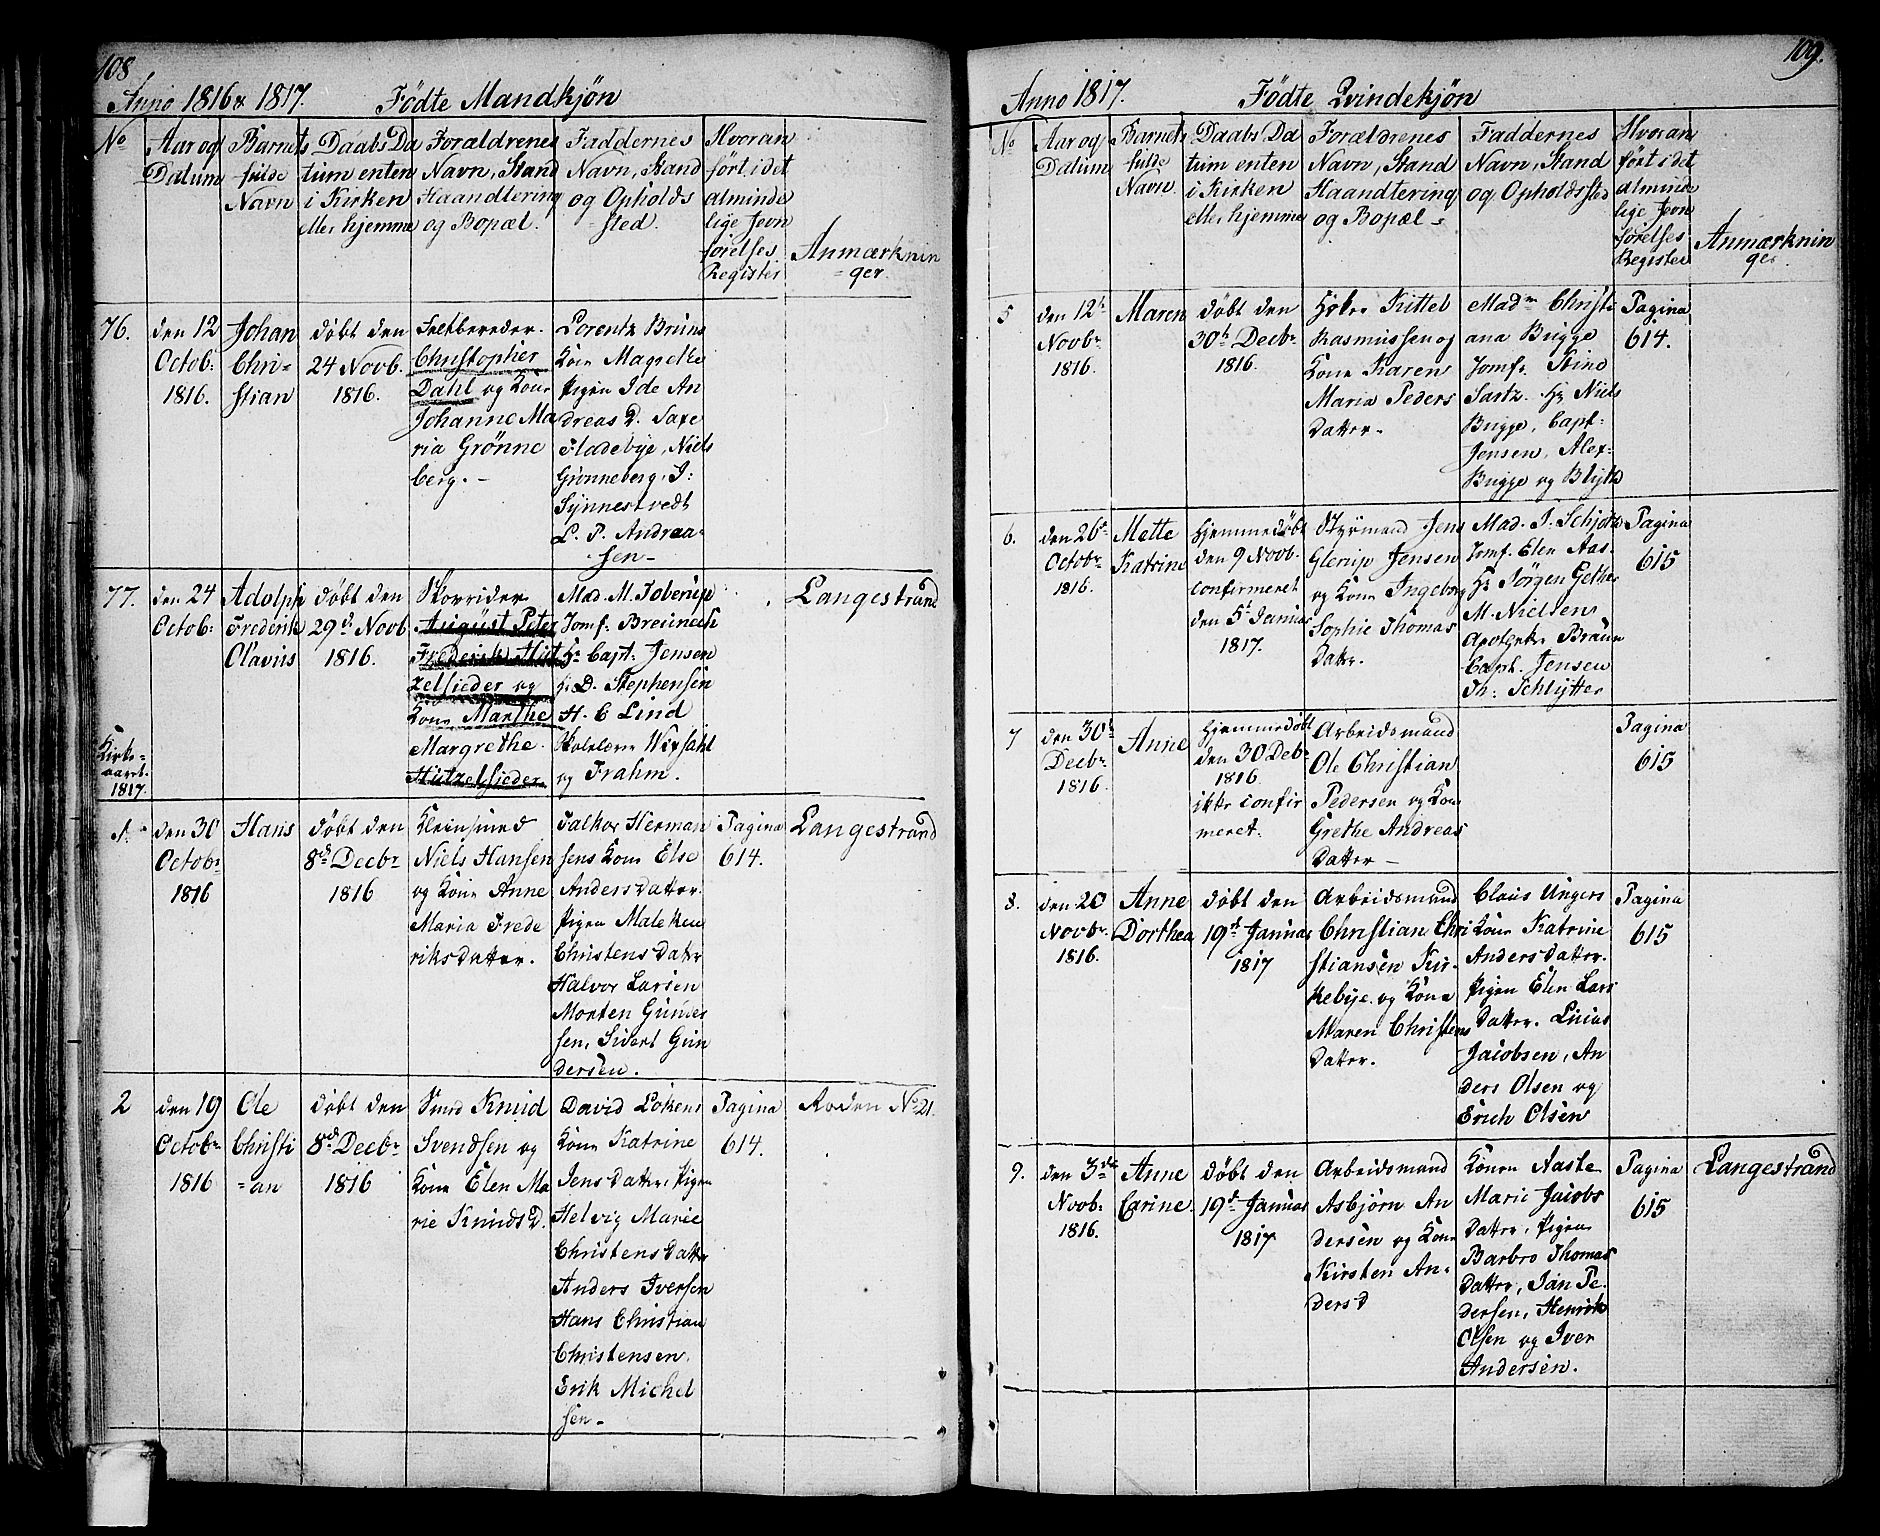 108
Anno 1816 & 1817. Födte Mandkjön
No
Aar og
Datum
Barnets
fulde
Navn
Daabs Da
tum enten
i Kirken
eller hjemme
Forældrenes
Navn, Stand
Haandtering
og Bopæl.
Faddernes
Navn, Stand
og Opholds
=sted.
Hvor an
ført i det
alminde
lige Jevn
förelses
Register
Anmærknin
=ger.
76.
den 12
Octob:
1816.
Johan
Chri=
stian
döbt den
24 Novb.
1816.
Christopher
Dahl og Kone
Johanne Ma
ria Grönne
berg. -
Lorentz Bruns
Kone Magrethe
Pigen Ide An
dreas D. Saxe
Fladebye, Niels
Gronneberg, J:
Synnestvedt
L. P. Andrea=
sen -
77.
den 24
Octob:
Adolph
Frederik
Olavus
döbt den
29d Novb
1816.
Skovrider
August Peter
Frederik Hüt
zelsieder og
Kone Marthe
Margrethe
Hützelsieder
Mad. M. Toberup
Jomf. Breunech
Hr Capt: Jensen
Hr D. Stephensen
H. C Lind
Skolelærer Wexsahl
og Frahm.
Langestrand
Kirke-
aaret
1817.
1.
den 30
Octobr
1816
Hans
döbt den
8de Decbr
1816
Kleinsmed
Niels Hansen
og Kone Anne
Maria Frede
riksdatter.
Falkor Herman
sens Kone Else
Andersdatter.
Pigen Maleken
Christensdattr
Halvor Larsen
Morten Gunder
sen, Sivert Gun
dersen.
Pagina
614.
Langestrand
2
den 19
Octobr
1816
Ole
Christi
=an
döbt den
8d Decbr
1816
Smed Knud
Svendsen og
Kone Elen Ma
rie Knuds D.
David Lokens
Kone Katrine
Jensdatter, Pigen
Helvig Marie
Christensdattr
Anders Iversen
Hans Christian
Christensen.
Erik Michel
sen -
Pagina
614.
Roden No 21.
109.
Anno 1817. Födte Qvindekjön
No
Aar og
Datum
Barnets
fulde
Navn
Daabs Da
tum enten
i Kirken
eller hjemme
Forældrenes
Navn, Stand
Haandtering
og Bopæl -
Faddernes
Navn, Stand
og Opholdssted
Hvor an
fört i det
alminde
lige Jevn
förelses
Register
Anmærknin
ger
5
den 12t
Novbr
1816.
Maren
döbt den
30t Decbr
1816.
Höker Kittel
Rasmussen og
Kone Karen
Maria Peders
Datter.
Madm Christi
ana Bugge
Jomfr. Stine
Sartz. Hr Niels
Bugge, Capt.
Jensen, Alex:
Bugge og Blythe
Pagina
614.
6.
den 26d
Octobr
1816.
Mette
Katrine
Hjemmedöbt
den 9 Novb.
confirmeret
den 5t Januar
1817.
Styrmand Jens
Glerup Jensen
og Kone Ingeborg
Sophie Thomas
Datter.
Mad. J. Schjötte
Jomf. Elen Aas.
Hr Jörgen Gether
M. Nielsens
Apotheker Braun
Capt. Jensen
Th: Schlytter
Pagina
615
7
den 30t
Decbr
1816.
Anne
Hjemmedöbt
den 30 Debr
1816.
ikke confir
meret.
Arbeidsmand
Ole Christian
Pedersen og Kone
Grethe Andreas
Datter -
Pagina
615
8.
den 20
Novbr
1816.
Anne
Dorthea
döbt den
19d Januar
1817
Arbeidsmand
Christian Chri
stiansen Kir-
kebye og Kone
Maren Christens
Datter.
Claus Ungers
Kone Katrine
Andersdatter.
Pigen Elen Lars
Datter. Lucas
Jacobsen, An
ders Olsen og
Erich Olsen
Pagina
615
9.
den 3die
Novb:
1816.
Anne
Carine.
döbt den
19d Januar
1817
Arbeidsmand
Asbjörn An
dersen og Kone
Kirsten An-
ders d
Konen Aaste
Marie Jacobs
Datter, Pigen
Barbro Thomas
Datter, Jan Pe.
dersen, Henrik
Olsen og Iver
Andersen.
Pagina
615
Langestrand